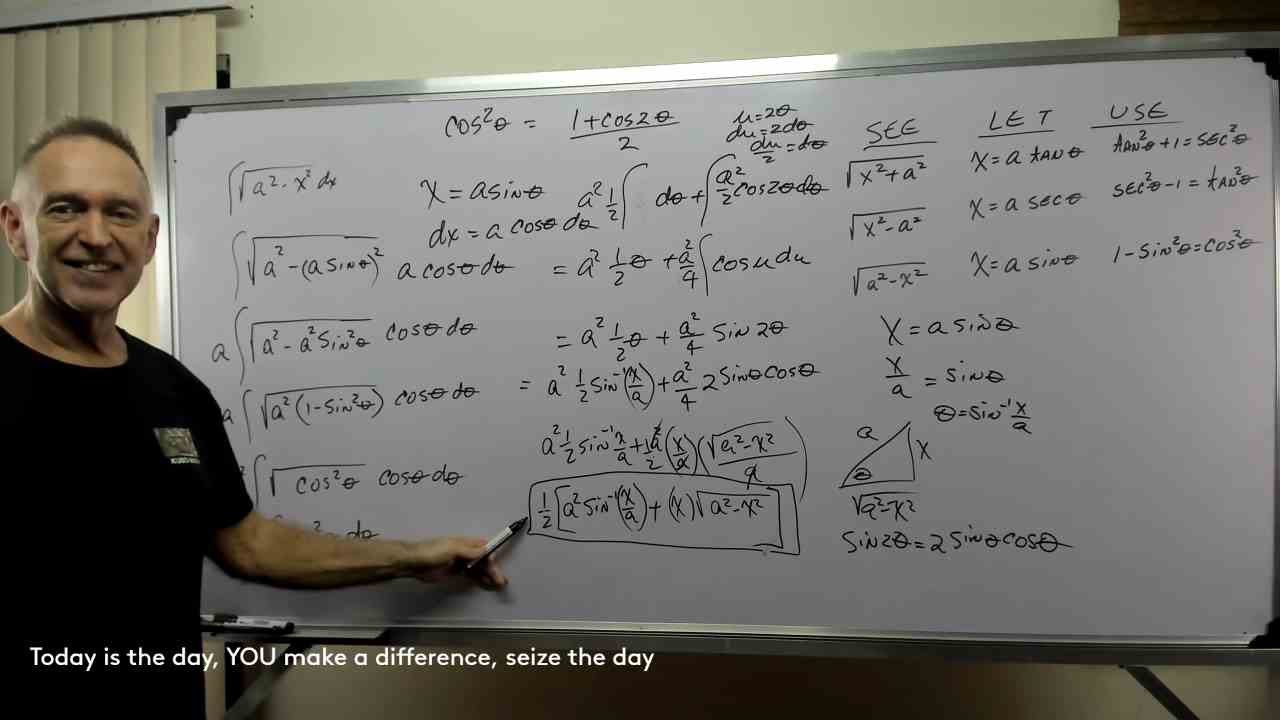 cos²θ = (1+cos2θ)/2
u=2θ
du=2dθ
du/2=dθ
∫√(a²-x²) dx
x = a sinθ
dx = a cosθ dθ
a² 1/2 ∫ dθ + ∫ a²/2 cos2θ dθ
∫√(a²-(a sinθ)²) a cosθ dθ
= a² 1/2 θ + a²/4 ∫cos u du
a∫√(a²-a² sin²θ) cosθ dθ
= a² 1/2 θ + a²/4 sin2θ
a∫√(a²(1-sin²θ)) cosθ dθ
= a² 1/2 sin⁻¹(x/a) + a²/4 2 sinθ cosθ
a² 1/2 sin⁻¹ x/a + 1/2 a² (x/a)(√(a²-x²)/a)
∫√(cos²θ) cosθ dθ
1/2 [a² sin⁻¹(x/a) + (x)√(a²-x²)]
dθ
SEE LET USE
√(x²+a²) x = a tanθ tan²θ+1 = sec²θ
√(x²-a²) x = a secθ sec²θ-1 = tan²θ
√(a²-x²) x = a sinθ 1-sin²θ=cos²θ
x = a sinθ
x/a = sinθ
θ=sin⁻¹ x/a
a
x
θ
√(a²-x²)
sin2θ=2 sinθ cosθ
Today is the day, YOU make a difference, seize the day